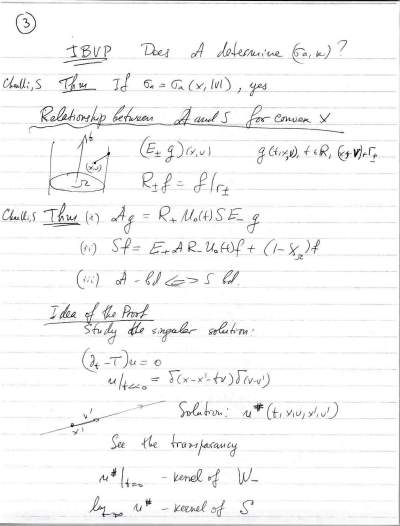 ③
IBVP Does A determine (σa, k)?
Choulli, S Thm If σa = σa(x, |v|), yes
Relationship between A and S for convex X
t
(x,v)
Ω
(E± g)(x,v) g(t,x,v), t∈R, (x,v)∈Γ±
R± f = f|Γ±
Choulli, S Thm (i) A g = R+ U0(t) S E- g
(ii) Sf = E+ A R- U0(t) f + (1-χΩ) f
(iii) A - bd <=> S bd.
Idea of the Proof
Study the singular solution:
(∂t - T) u = 0
u|t<<0 = δ(x-x'-tv) δ(v-v')
x' v'
Solution: u#(t, x, v, x', v')
See the transparancy
u#|t=0 - kernel of W-
u# - kernel of S